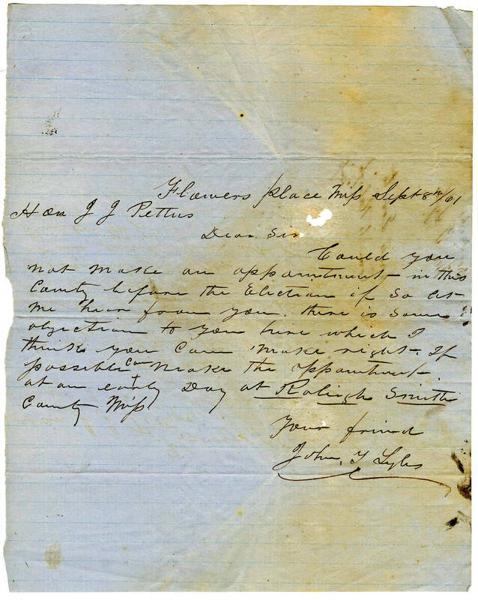 Flowers place Miss Sept 8th/61
Hon J J Pettus
Dear Sir
Could you
not make an appointment in this
County before the Election if so let
me hear from you. there is some
objection to you here which I
think you can make right. If
possible make the appointment
at an early Day at Raleigh Smith
County Miss
Your friend
John, T Lyles